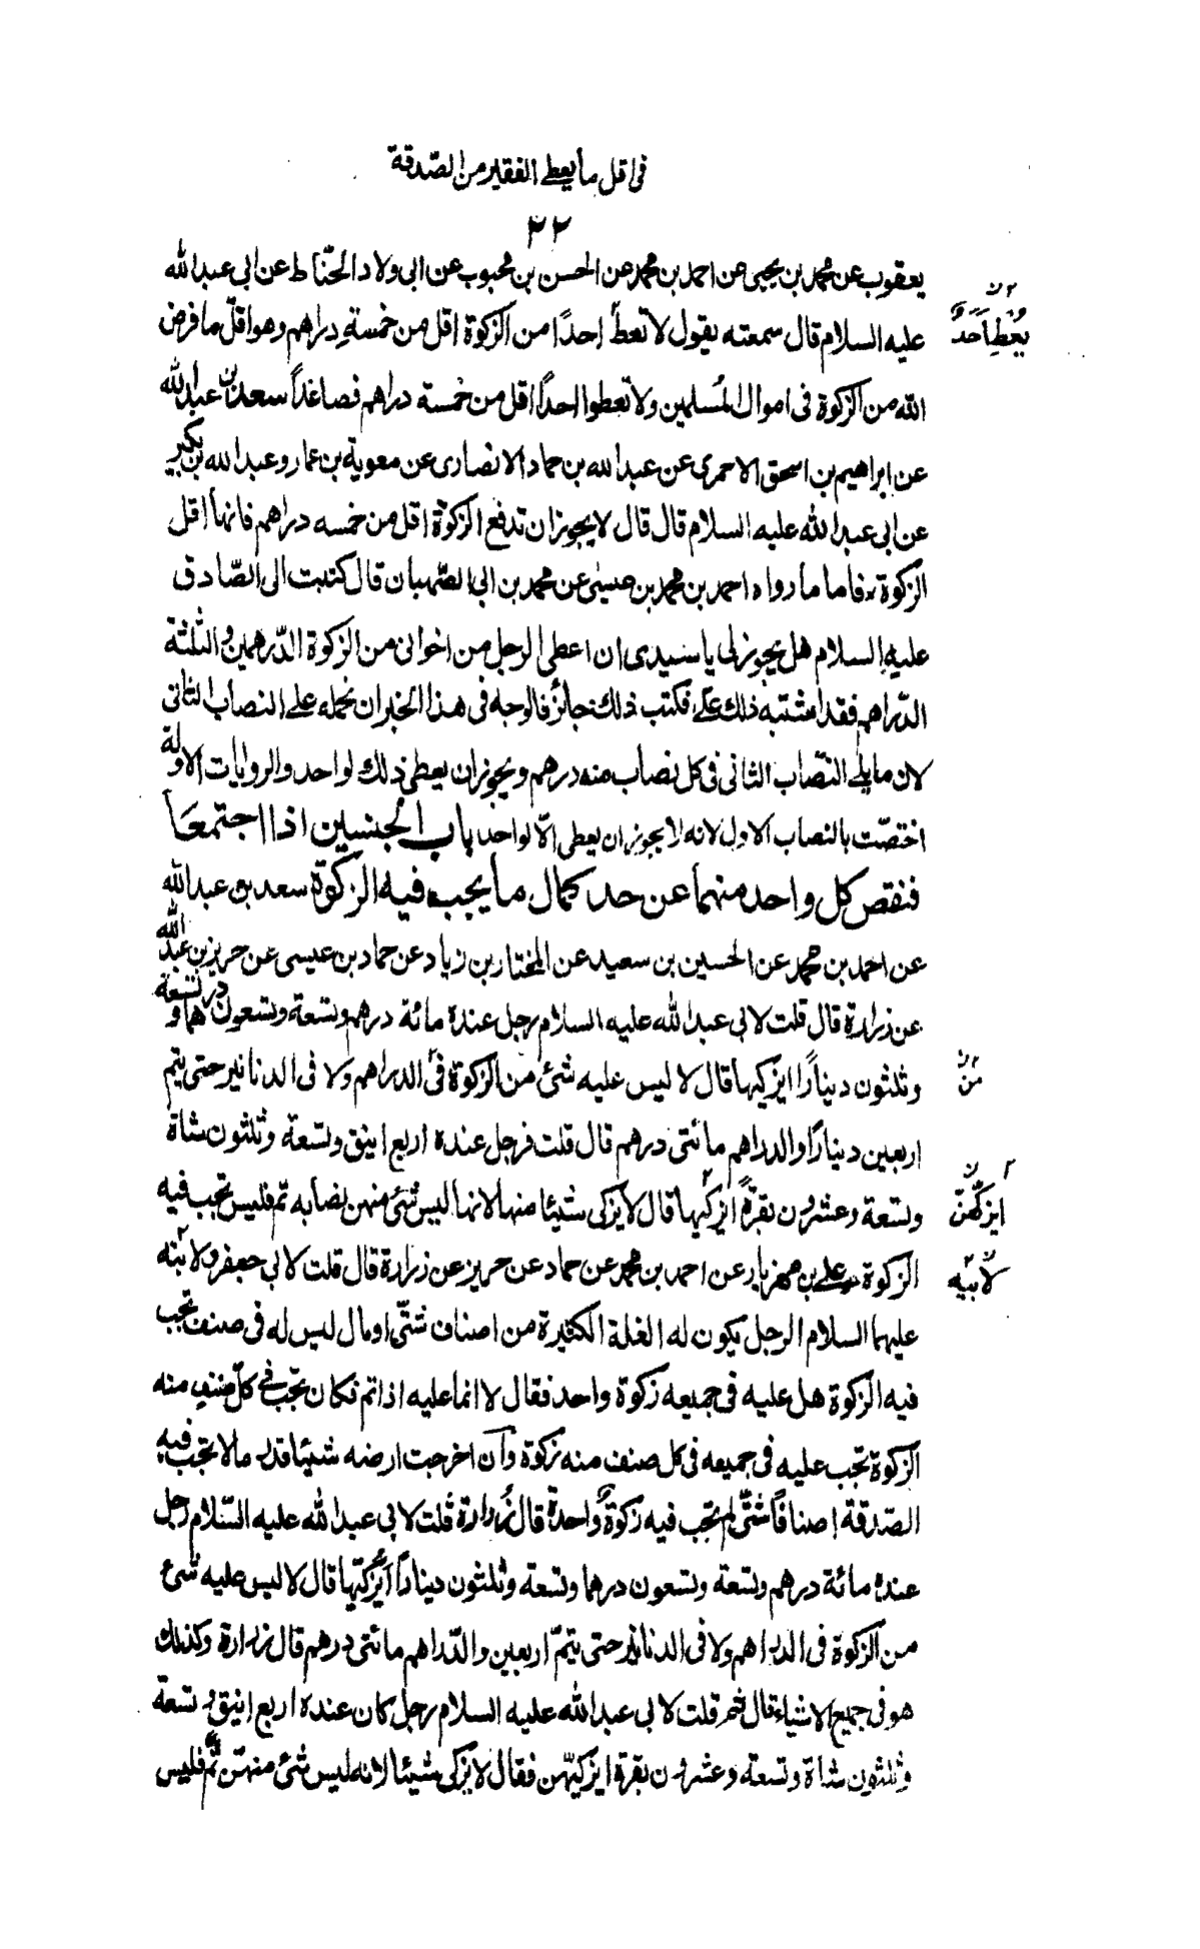 فى اقل ما يعطى الفقير من الصّدقة
٣٢
يعقوب عن محمد بن يحيى عن احمد بن محمد عن الحسن بن محبوب عن ابى ولاد الحنّاط عن ابى عبد الله
عليه السلام قال سمعته يقول لا تعط احدًا من الزكوة اقل من خمسة دراهم وهو اقلّ ما فرض
يُعْطِ اَحَدٌ
الله من الزكوة فى اموال المُسلمين ولا تعطوا احدًا اقل من خمسة دراهم فصاعدًا سعد بن عبد الله
عن ابراهيم بن اسحق الاحمرى عن عبد الله بن حماد الانصارى عن معوية بن عمار وعبد الله بن بكير
عن ابى عبد الله عليه السلام قال قال لا يجوز ان تدفع الزكوة اقل من خمسه دراهم فانها اقل
الزكوة فاما ما رواه احمد بن محمد بن عيسى عن محمد بن ابى الصّهبان قال كتبت الى الصّادق
عليه السلام هل يجوز لى يا سيدى ان اعطى الرجل من اخوانى من الزكوة الدّرهمين والثلثة
الدّراهم فقد اشتبه ذلك علىّ فكتب ذلك جائز فالوجه فى هذا الخبر ان نحمله على النصاب الثانى
لان ما يلى النّصاب الثانى فى كل نصاب منه درهم ويجوز ان يعطى ذلك لواحد والروايات الاولة
اختصّت بالنصاب الاول لانه لا يجوز ان يعطى الّا لواحد باب الجنسين اذا اجتمعا
فنقص كل واحد منهما عن حد كمال ما يجب فيه الزكوة سعد بن عبد الله
عن احمد بن محمد عن الحسين بن سعيد عن المختار بن زياد عن حماد بن عيسى عن حريز بن عبد الله
عن زرارة قال قلت لابى عبد الله عليه السلام رجل عنده مائة درهم وتسعة وتسعون درهما وتسعة
وثلثون دينارًا ايزكيها قال لا ليس عليه شئ من الزكوة فى الدراهم ولا فى الدنانير حتى يتم
من
اربعين دينارًا والدراهم مائتى درهم قال قلت فرجل عنده اربع اينق وتسعة وثلثون شاة
وتسعة وعشرون بقرةً ايزكّيها قال لا يزكى شيئا منها لانها ليس شئ منهن نصابه تم فليس تجب فيه
ايزكّهنّ
الزكوة على بن مهزيار عن احمد بن محمد عن حماد عن حريز عن زرارة قال قلت لابى جعفر ولابنه
لابنيه
عليهما السلام الرجل يكون له الغلة الكثيرة من اصناف شتّى او مال ليس له فى صنف تجب
فيه الزكوة هل عليه فى جميعه زكوة واحد فقال لا انما عليه اذا تم فكان تجب فى كلّ صنف منه
الزكوة تجب عليه فى جميعه فى كل صنف منه زكوة وان اخرجت ارضه شيئا قدر ما لا تجب فيه
الصّدقة اصنافًا شتّى لم تجب فيه زكوةٌ واحدة قال زرارة قلت لابى عبد الله عليه السّلام رجل
عنده مائة درهم وتسعة وتسعون درهما وتسعة وثلثون دينارًا أيُزكّيها قال لا ليس عليه شئ
من الزكوة فى الدراهم ولا فى الدنانير حتى يتمّ اربعين والدّراهم مائتى درهم قال زرارة وكذلك
هو فى جميع الاشياء قال ثم قلت لابى عبد الله عليه السلام رجل كان عنده اربع اينق وتسعة
وثلثون شاة وتسعة وعشرون بقرة ايزكيّهن فقال لا يزكى شيئا لانه ليس شئ منهنّ تمّ فليس